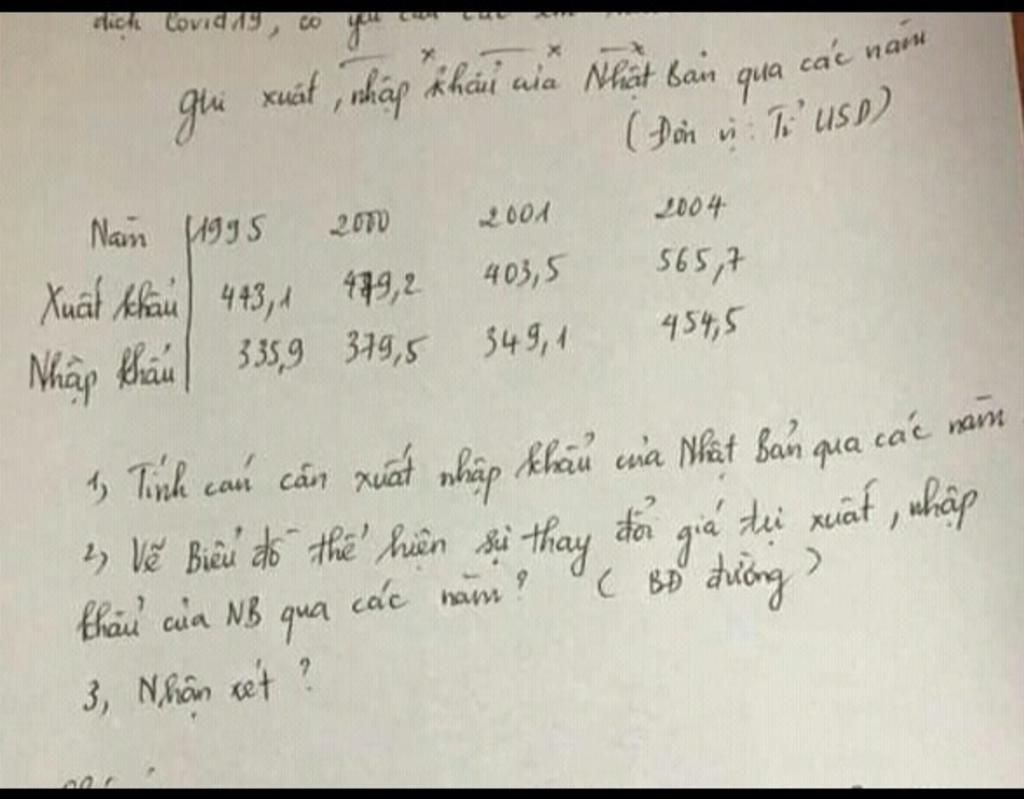 dịch Covid19, có yêu cầu các em
ghi xuất, nhập khẩu của Nhật Bản qua các năm
(Đơn vị: Tỉ USD)
Năm 1995 2000 2001 2004
Xuất khẩu 443,1 479,2 403,5 565,7
Nhập khẩu 335,9 379,5 349,1 454,5
1, Tính cán cân xuất nhập khẩu của Nhật Bản qua các năm
2, Vẽ Biểu đồ thể hiện sự thay đổi giá trị xuất, nhập
khẩu của NB qua các năm? (BĐ đường)
3, Nhận xét?